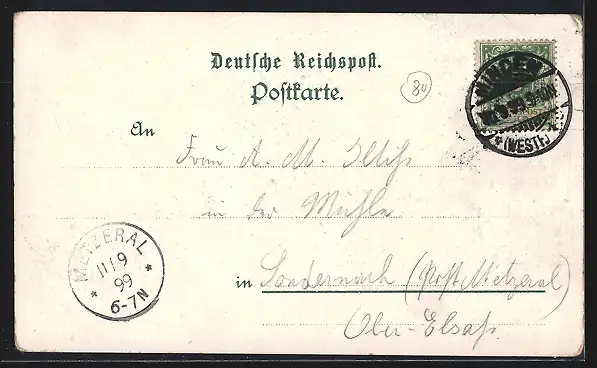 Deutsche Reichspost.
Postkarte.
80
MINDEN
(WESTF.)
An
Frau A. M.
in der Mühle
in Sondernach (Post Metzeral)
Ober-Elsaß
METZERAL
11/9
99
6-7N